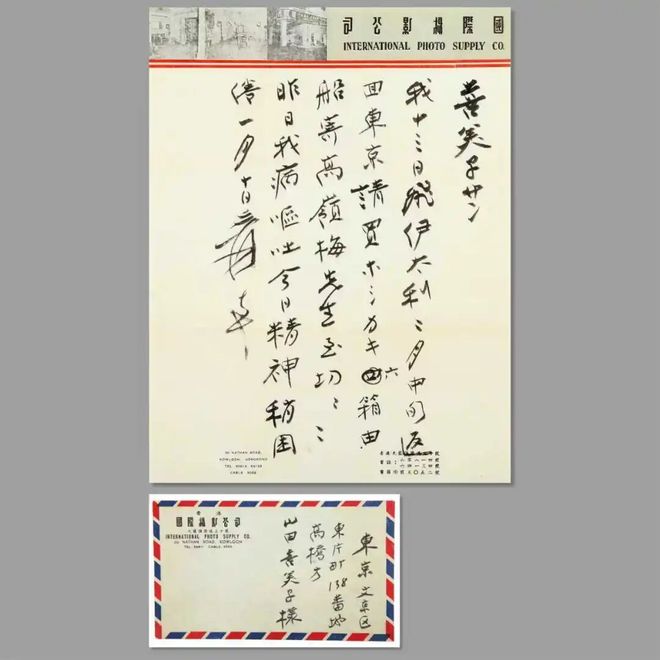 國際攝影公司
INTERNATIONAL PHOTO SUPPLY CO.
喜美子サン
我十三日飛伊太利二月中旬返
回東京請買ホシカキ六箱由
船寄高嶺梅先生至切〻〻
昨日我病嘔吐今日精神稍困
倦一月十日爰
NATHAN ROAD,
KOWLOON, HONGKONG
TEL.
CABLE
香港
國際攝影公司
INTERNATIONAL PHOTO SUPPLY CO.
NATHAN ROAD, KOWLOON
東京文京区
東片町138番地
高橋方
山田喜美子様